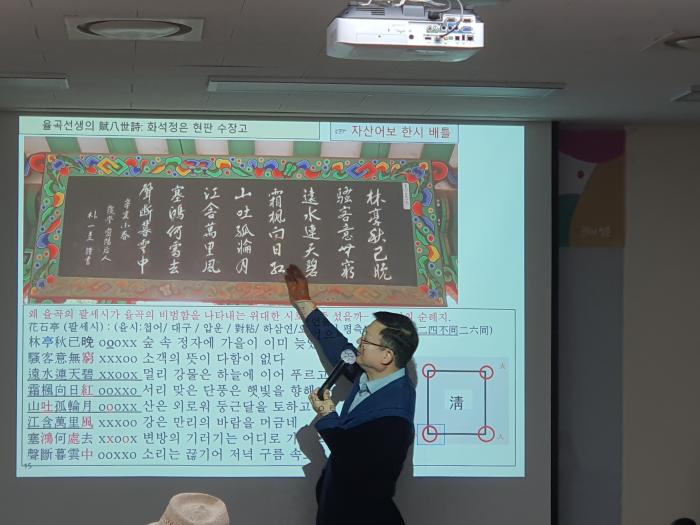 율곡선생의 賦八世詩: 화석정은 현판 수장고
☞ 자산어보 한시 배틀
林亭秋已晩
騷客意無窮
遠水連天碧
霜楓向日紅
山吐孤輪月
江含萬里風
塞鴻何處去
聲斷暮雲中
왜 율곡의 팔세시가 율곡의 비범함을 나타내는 위대한 시로 순례지.
花石亭 (팔세시) : (율시:첩어/ 대구 / 압운 / 對粘/ 하삼연/ 평측 二四不同二六同)
林亭秋已晩 oooxx 숲 속 정자에 가을이 이미
騷客意無窮 xxxoo 소객의 뜻이 다함이 없다
遠水連天碧 xxoox 멀리 강물은 하늘에 이어 푸르고
霜楓向日紅 ooxxo 서리 맞은 단풍은 햇빛을 향해
山吐孤輪月 oxoox 산은 외로워 둥근달을 토하고
江含萬里風 ooxxo 강은 만리의 바람을 머금네
塞鴻何處去 xxoox 변방의 기러기는 어디로
聲斷暮雲中 ooxxo 소리는 끊기어 저녁 구름 속
淸
15